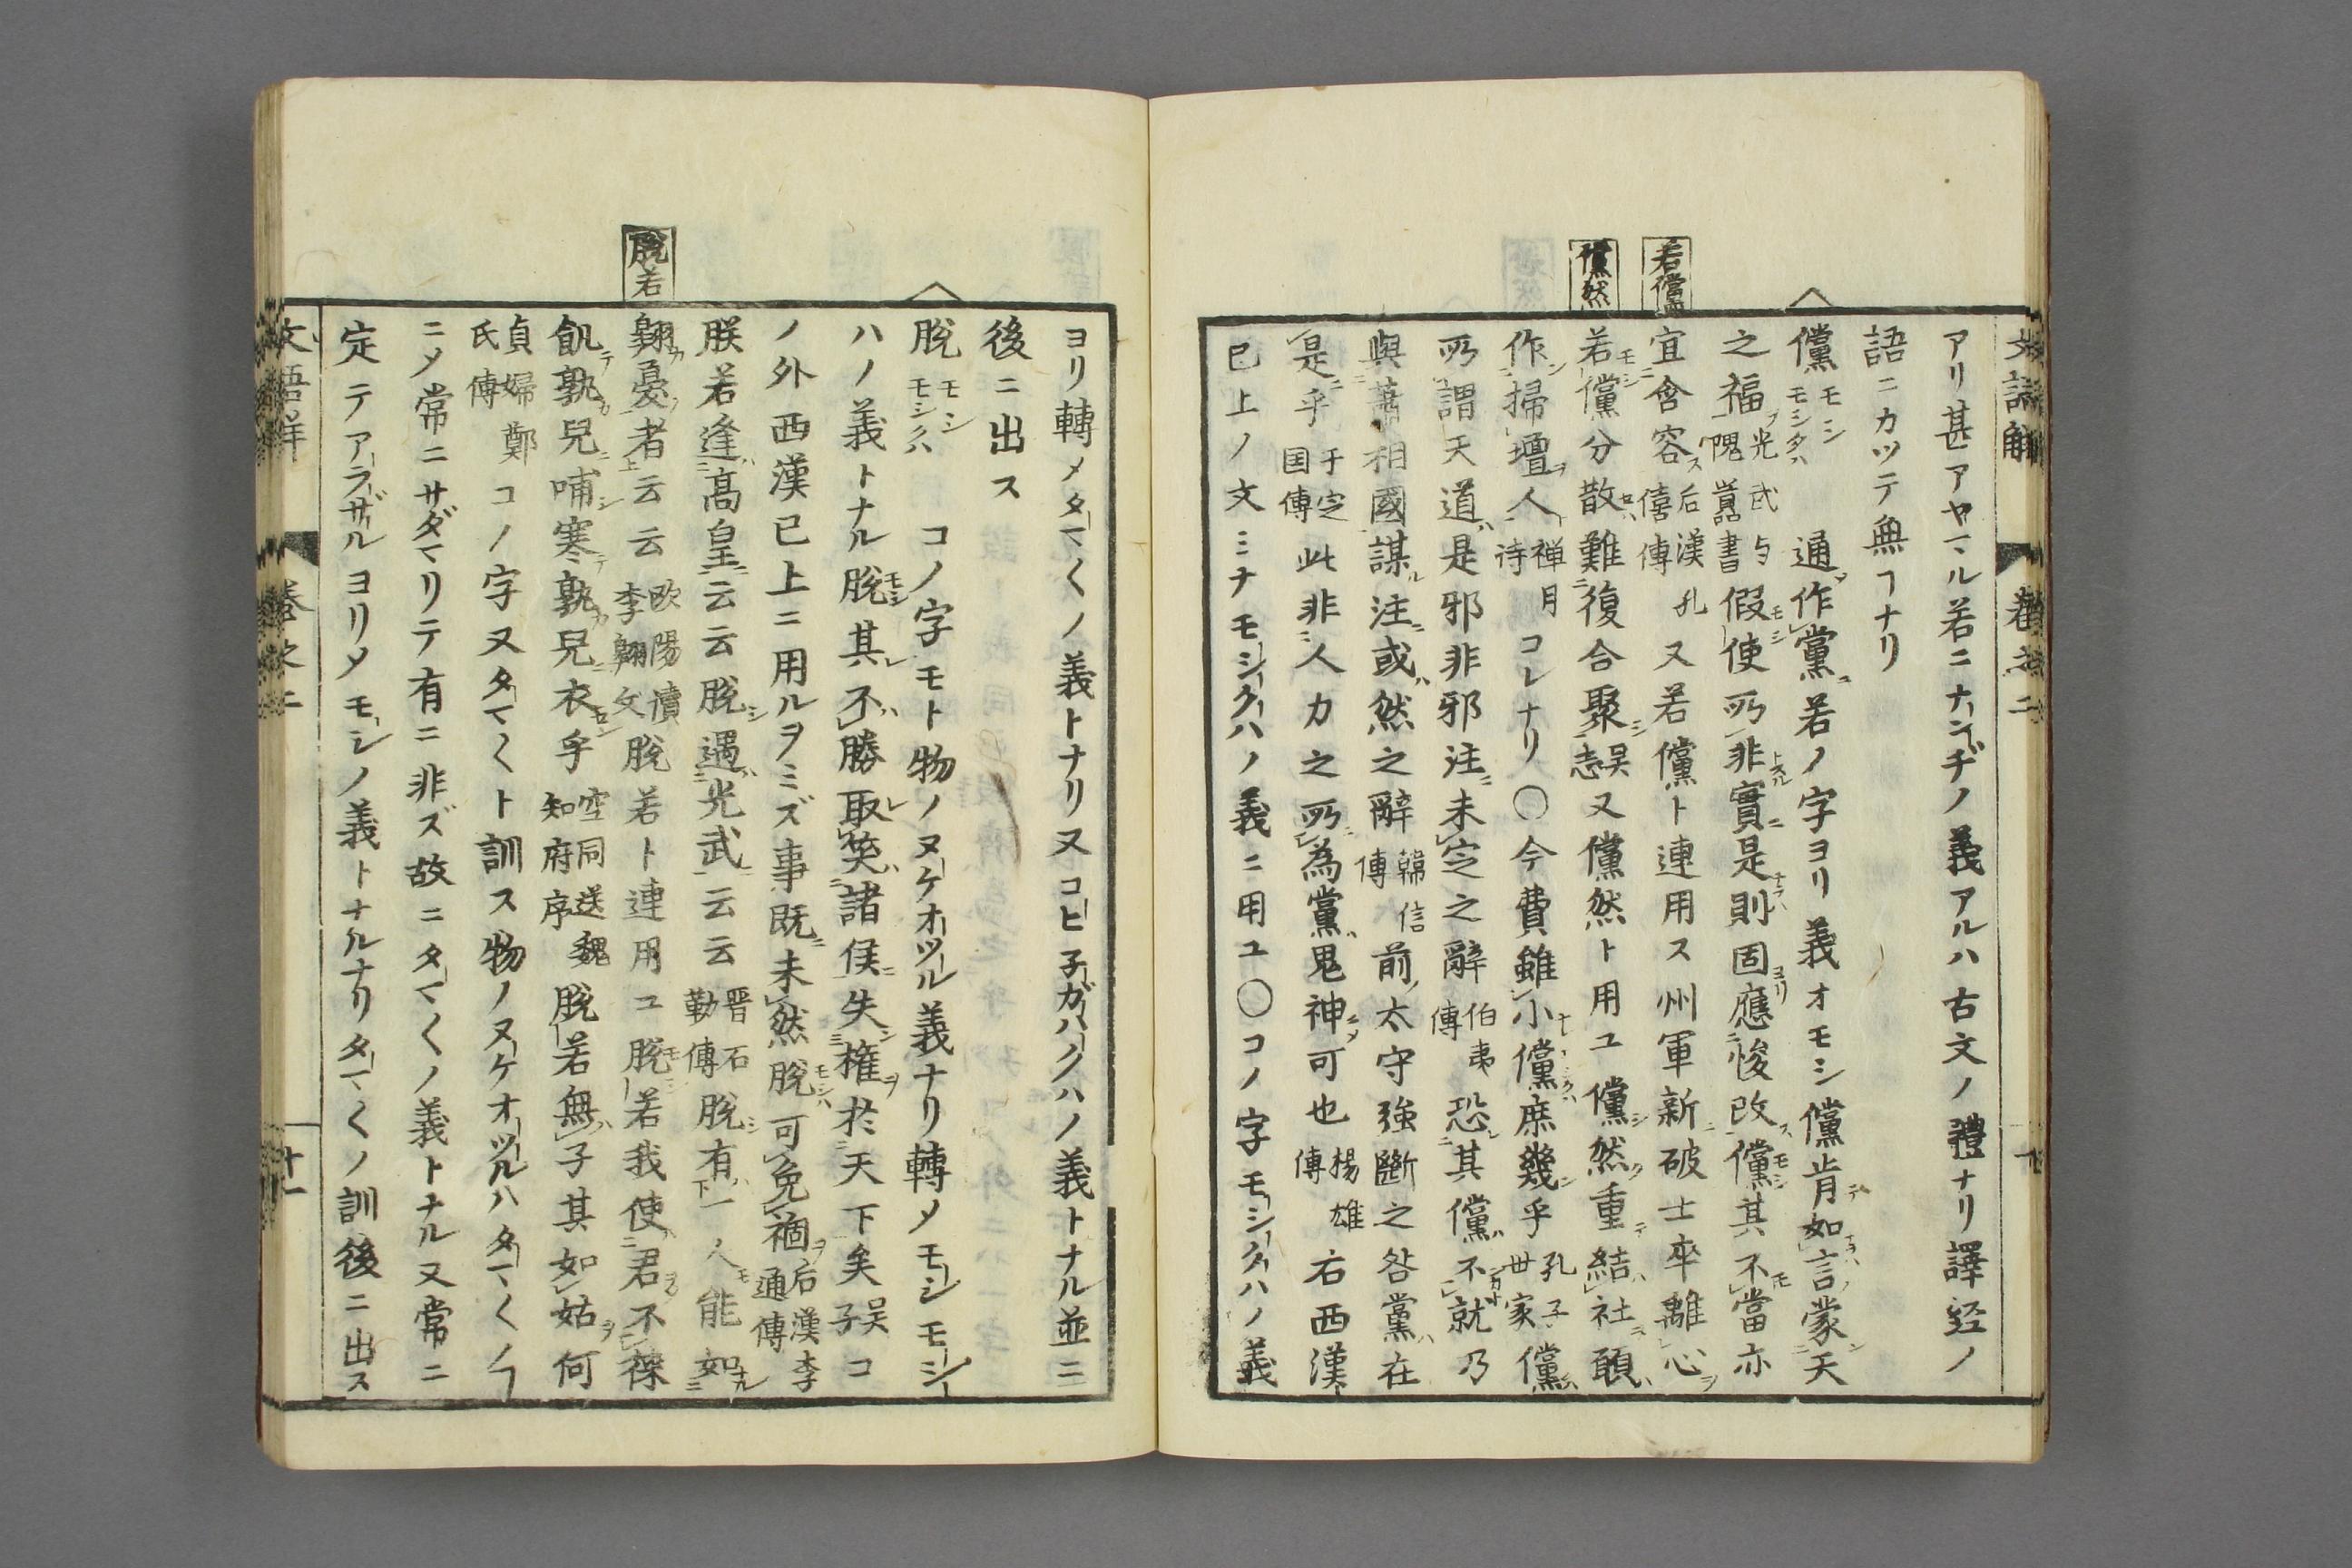 若儻
儻然
アリ甚アヤマル若ニナンヂノ義アルハ古文ノ體ナリ譯経ノ
語ニカツテ無ヿナリ
儻 モシ モシクハ 通作黨若ノ字ヨリ義オモシ儻肯如言蒙天
之福 光武与隗囂書 假使所非實是則固應悛改儻其不當亦
宜含容 后漢孔僖傳 又若儻ト連用ス州軍新破士卒離心
若儻分散難復合聚 吴志 又儻然ト用ユ儻然重結社願
作掃壇人 禅月詩 コレナリ〇今費雖小儻庶幾乎 孔子世家 儻
所謂天道是邪非邪注未定之辭 伯夷傳 恐其儻不就乃
與蕭相國謀注或然之辭 韓信傳 前太守強斷之咎黨在
是乎 于定国傳 此非人力之所為黨鬼神可也 揚雄傳 右西漢
已上ノ文ミナモシクハノ義ニ用ユ〇コノ字モシクハノ義
脱若
ヨリ轉メタマ〱ノ義トナリ又コヒ子ガハクハノ義トナル並ニ
後ニ出ス
脱 モシ モシクハ コノ字モト物ノヌケオツル義ナリ轉メモシモシ
ハノ義トナル脱其不勝取笑諸侯失権於天下矣 吴子 コ
ノ外西漢已上ニ用ルヲミズ事既未然脱可免禍 后漢李通傳
朕若逢髙皇云云脱遇光武云云 晋石勒傳 脱有一人能如
翺憂者云云 欧陽讀李翺文 脱若ト連用ユ脱若我使君不襟
飢孰兒哺寒孰兒衣乎 空同送魏知府序 脱若無子其如姑何
貞婦鄭氏傳 コノ字又タマ〱ト訓ス物ノヌケオツルハタマ〱ノヿ
ニメ常ニサダマリテ有ニ非ズ故ニタマ〱ノ義トナル又常ニ
定テアラザルヨリメモシノ義トナルナリタマ〱ノ訓後ニ出ス
卷之二
十一